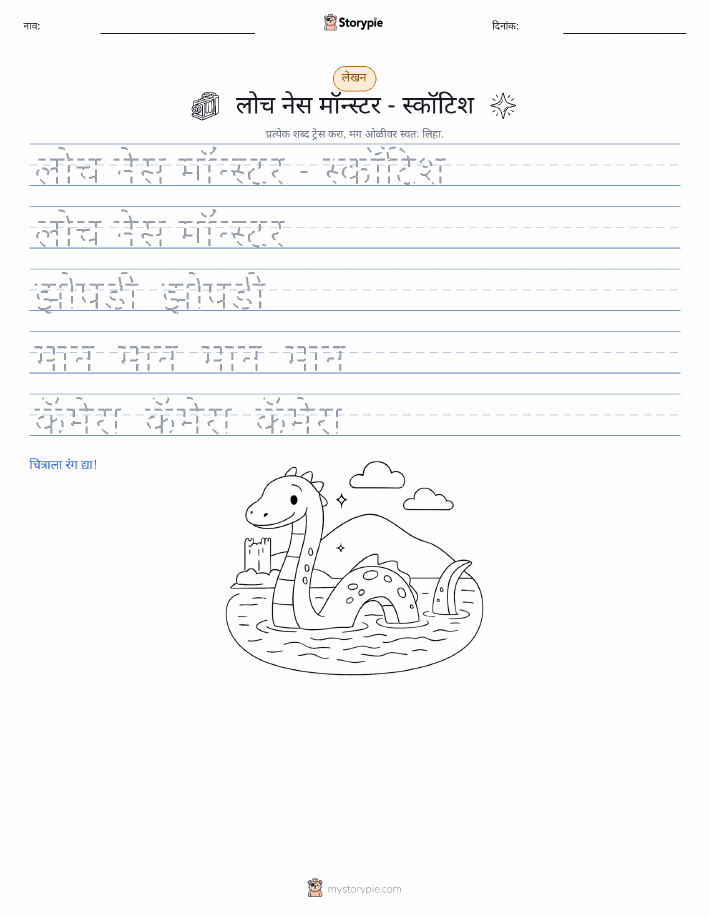 नाव:
Storypie
दिनांक:
लेखन
लोच नेस मॉन्स्टर - स्कॉटिश
प्रत्येक शब्द ट्रेस करा, मग ओळीवर स्वतः लिहा.
लोच नेस मॉन्स्टर - स्कॉटिश
लोच नेस मॉन्स्टर
झोपडी झोपडी
मान मान मान मान
कॅमेरा कॅमेरा कॅमेरा
चित्राला रंग द्या!
mystorypie.com